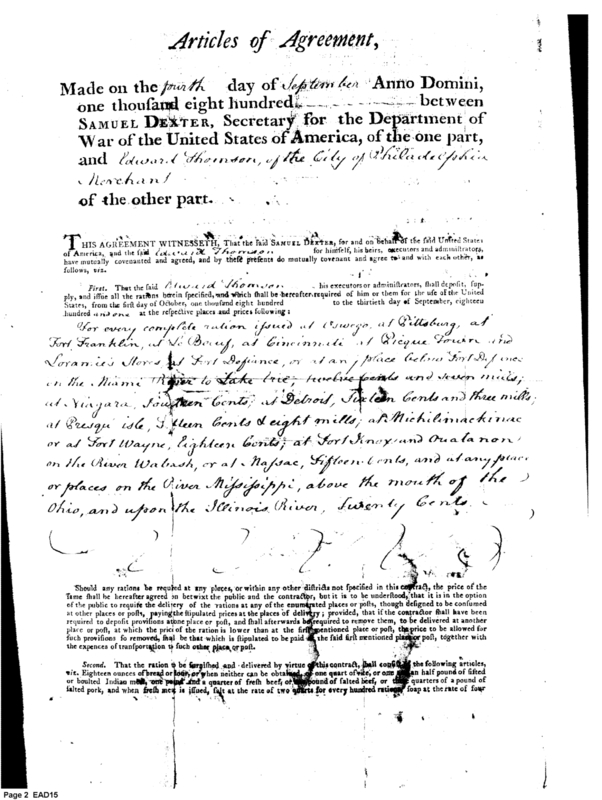 Articles of Agreement,
Made on the fourth day of September Anno Domini,
one thouſand eight hundred between
SAMUEL DEXTER, Secretary for the Department of
War of the United States of America, of the one part,
and Edward Thomson, of the City of Philadelphia
Merchant
of the other part.
THIS AGREEMENT WITNESSETH, That the ſaid SAMUEL DEXTER, for and on behalf of the ſaid United States
of America, and the ſaid Edward Thomson for himſelf, his heirs, executors and adminiſtrators,
have mutually covenanted and agreed, and by theſe preſents do mutually covenant and agree to and with each other, as
follows, viz.
Firſt. That the ſaid Edward Thomson, his executors or adminiſtrators, ſhall depoſit, ſup-
ply, and iſſue all the rations herein ſpecified, and which ſhall be hereafter required of him or them for the uſe of the United
States, from the firſt day of October, one thouſand eight hundred to the thirtieth day of September, eighteen
hundred and one at the reſpective places and prices following;
For every complete ration iſsued at Oswego, at Pittsburg, at
Fort Franklin, at Le Bœuf, at Cincinnati at Picque Town and
Loramie's Stores, at Fort Defiance, or at any place below Fort Defiance
on the Miami River to Lake Erie, twelve Cents and seven mills;
at Niagara, fourteen Cents; at Detroit, Sixteen Cents and three mills;
at Presqu' isle, Cents & eight mills; at Michilimackinac
or at Fort Wayne, Eighteen Cents; at Fort Knox and Ouatanon
on the River Wabash, or at Maſsac, Fifteen Cents, and at any place
or places on the River Miſsiſsippi, above the mouth of the
Ohio, and upon the Illinois River, Twenty Cents
Should any rations be required at any places, or within any other diſtricts not ſpecified in this contract, the price of the
ſame ſhall be hereafter agreed on betwixt the public and the contractor, but it is to be underſtood, that it is in the option
of the public to require the delivery of the rations at any of the enumerated places or poſts, though deſigned to be conſumed
at other places or poſts, paying the ſtipulated prices at the places of delivery; provided, that if the contractor ſhall have been
required to depoſit proviſions at one place or poſt, and ſhall afterwards be required to remove them, to be delivered at another
place or poſt, at which the price of the ration is lower than at the firſt mentioned place or poſt, the price to be allowed for
ſuch proviſions ſo removed, ſhall be that which is ſtipulated to be paid at the ſaid firſt mentioned place or poſt, together with
the expences of tranſportation to ſuch other place or poſt.
Second. That the ration to be furniſhed and delivered by virtue of this contract, ſhall conſiſt of the following articles,
viz. Eighteen ounces of bread or flour, or when neither can be obtained, of one quart of rice, or one and an half pound of ſifted
or boulted Indian meal, one pound and a quarter of freſh beef, or one pound of ſalted beef, or three quarters of a pound of
ſalted pork, and when freſh meat is iſſued, ſalt at the rate of two quarts for every hundred rations, ſoap at the rate of four
Page 2 EAD15